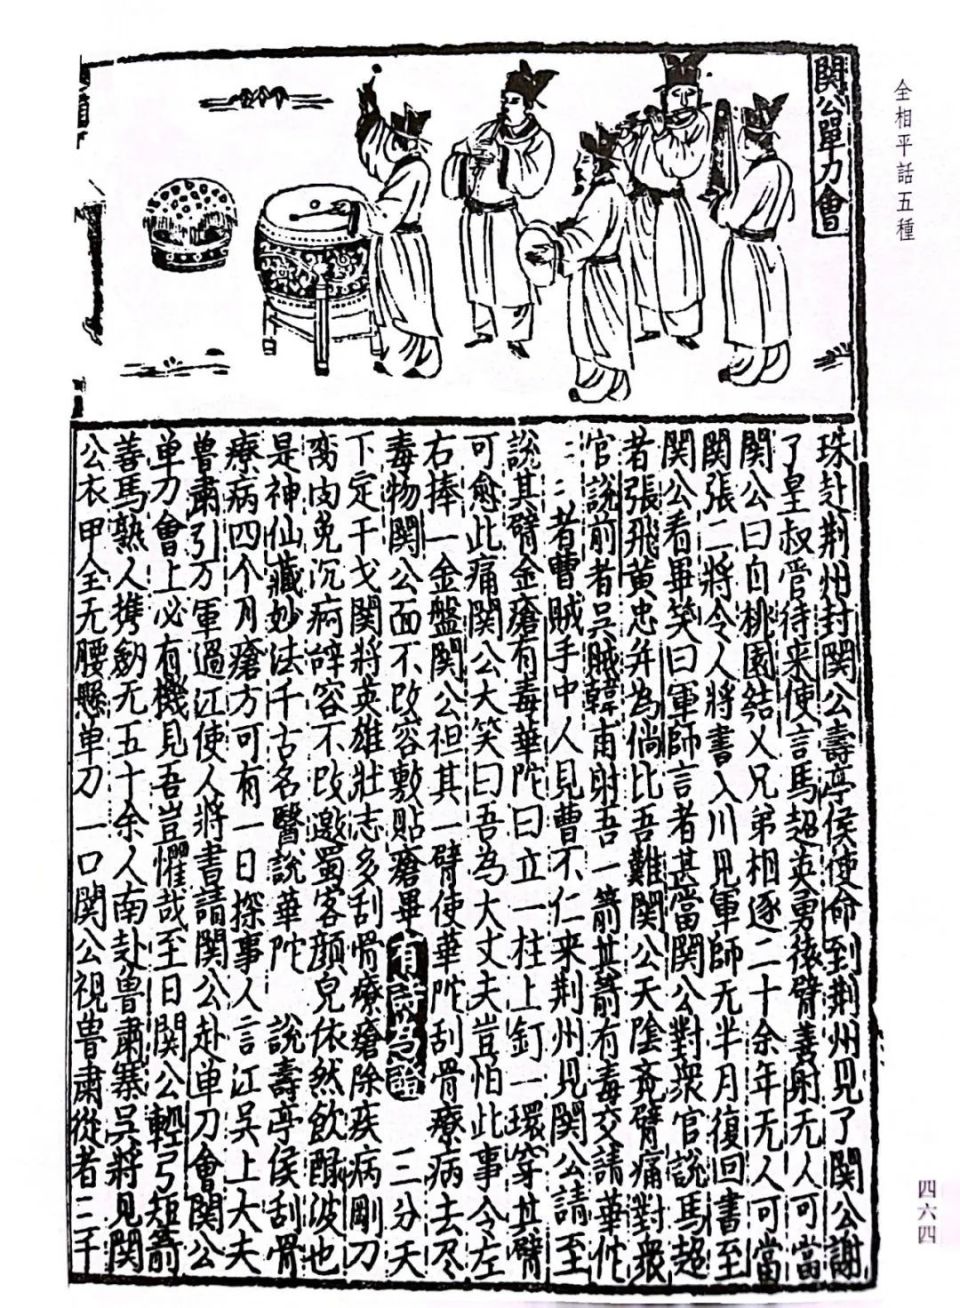 全相平話五種
關公單刀會
珠赴荆州封関公壽亭侯使命到荆州見了関公謝
了皇叔管待来使言馬超英勇猿臂善射无人可當
関公曰自桃園結义兄弟相逐二十余年无人可當
関張二將令人將書入川見軍師无半月復回書至
関公看畢笑曰軍師言者甚當関公對衆官說馬超
者張飛黃忠并為倘比吾難関公天陰觉臂痛對衆
官說前者吴賊韓甫射吾一箭其箭有毒交請華佗
者曹賊手中人見曹不仁来荆州見関公請至
說其臂金瘡有毒華陀曰立一柱上釘一環穿其臂
可愈此痛関公大笑曰吾為大丈夫豈怕此事令左
右捧一金盤関公袒其一臂使華陀刮骨療病去尽
毒物関公面不改容敷貼瘡畢 有詩為證 三分天
下定干戈関將英雄壯志多刮骨療瘡除疾病剛刀
脔肉免沉疴辞容不改邀蜀客顔皃依然飲醁波也
是神仙藏妙法千古名醫說華陀 說壽亭侯刮骨
療病四个月瘡方可有一日探事人言江吴上大夫
魯肅引万軍過江使人將書請関公赴单刀會関公
单刀會上必有機見吾豈懼哉至日関公輕弓短箭
善馬熟人携劔无五十余人南赴魯肅寨吴將見関
公衣甲全无腰懸单刀一口関公視魯肅從者三千
四六四